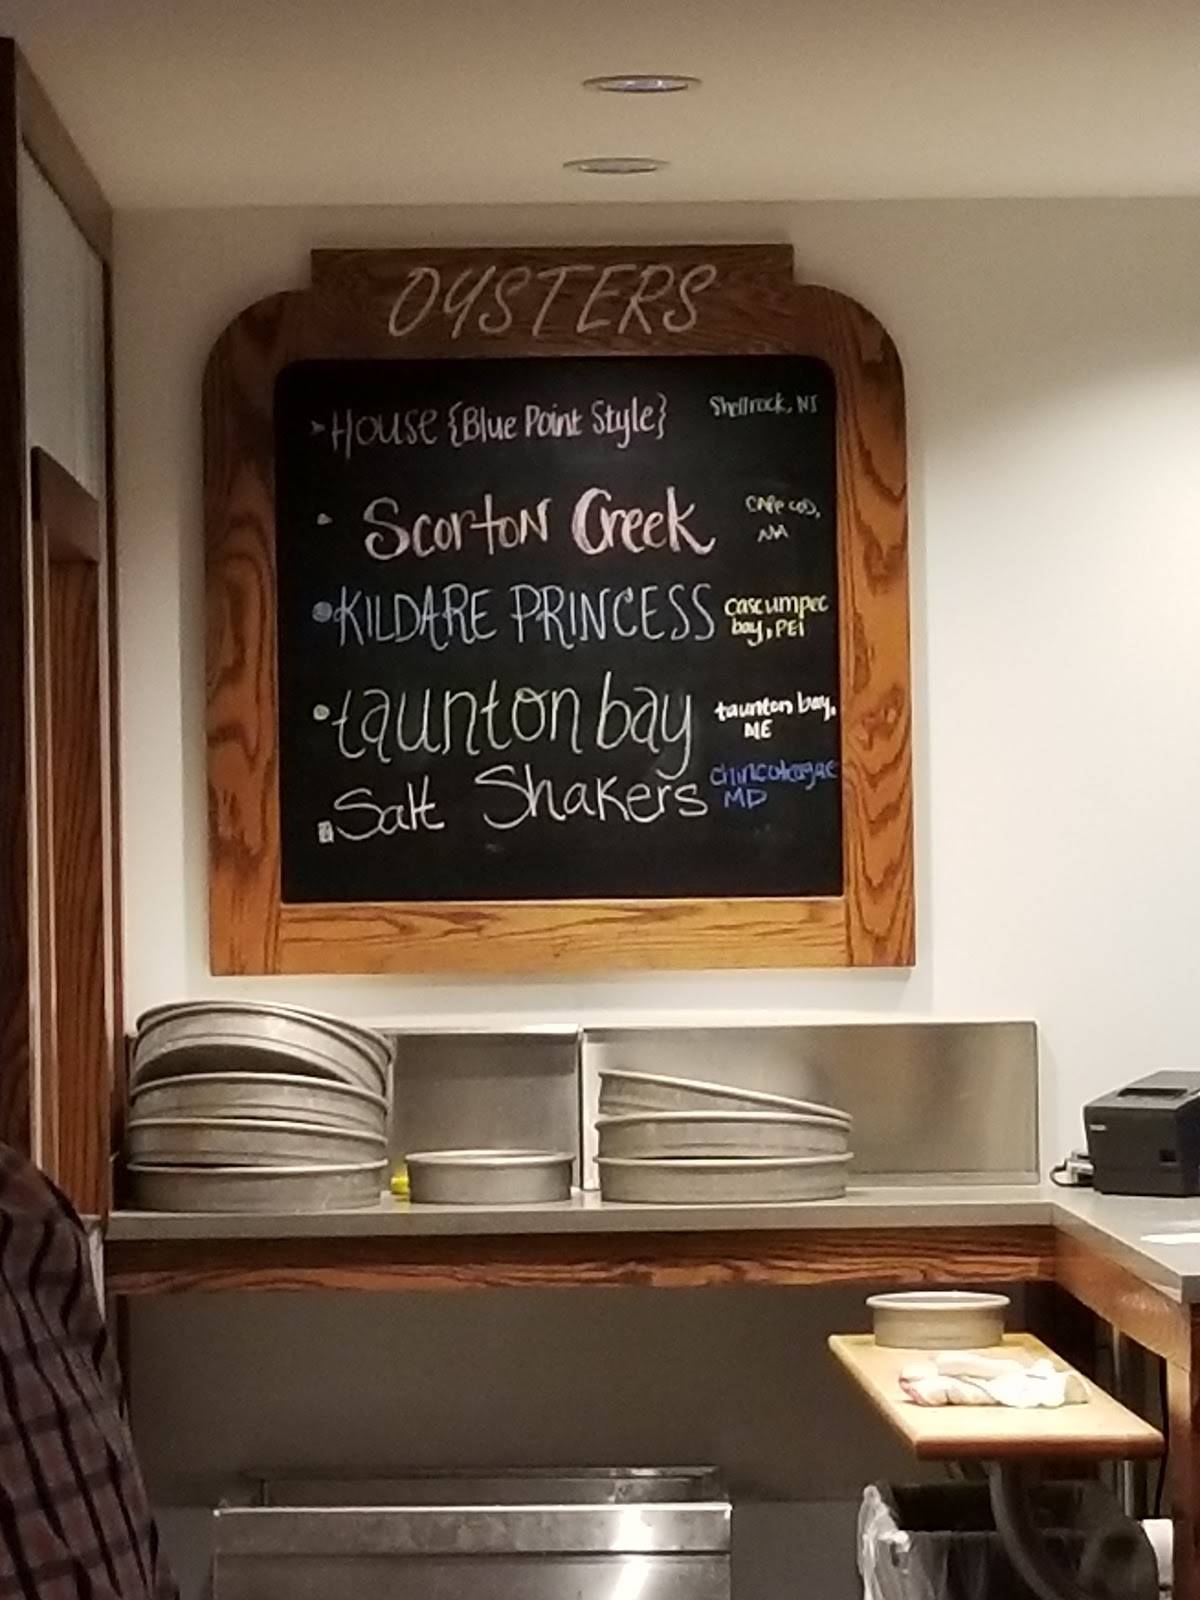 OYSTERS
House {Blue Point Style} Shellrock, NJ
Scorton Creek CAPE COD,
MA
KILDARE PRINCESS cascumpec
bay, PEI
taunton bay taunton bay,
ME
Salt Shakers chincoteague
MD